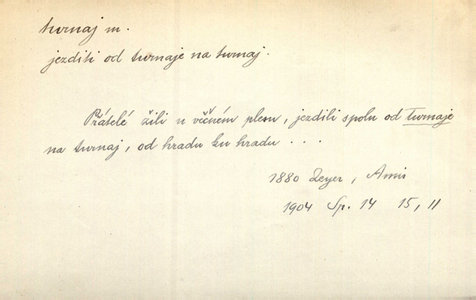 turnaj m.
jezditi od turnaje na turnaj.
Přátelé žili u věčném plesu, jezdili spolu od turnaje
na turnaj, od hradu ku hradu . . .
1880 Zeyer, Amis
1904 Sp. 14 15, 11